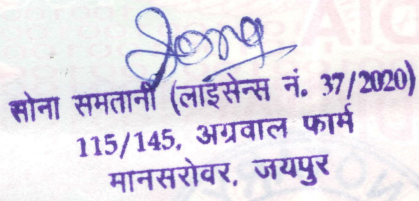 सोना समतानी (लाईसेन्स नं. 37/2020)
115/145, अग्रवाल फार्म
मानसरोवर, जयपुर